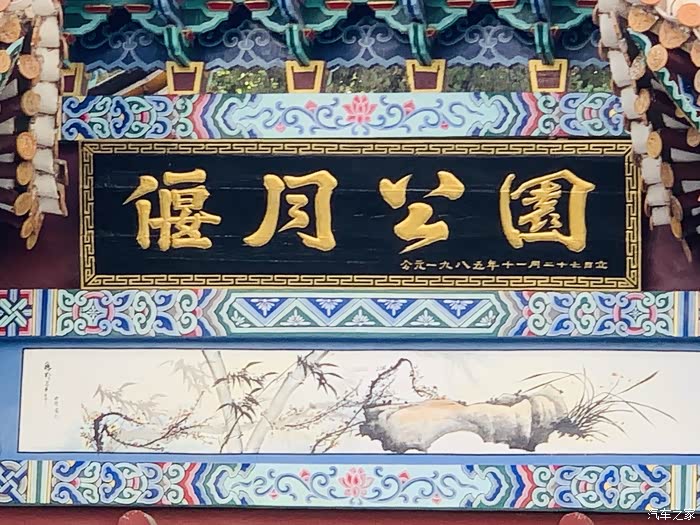 偃月公園
公元一九八五年十一月二十七日立
汽车之家